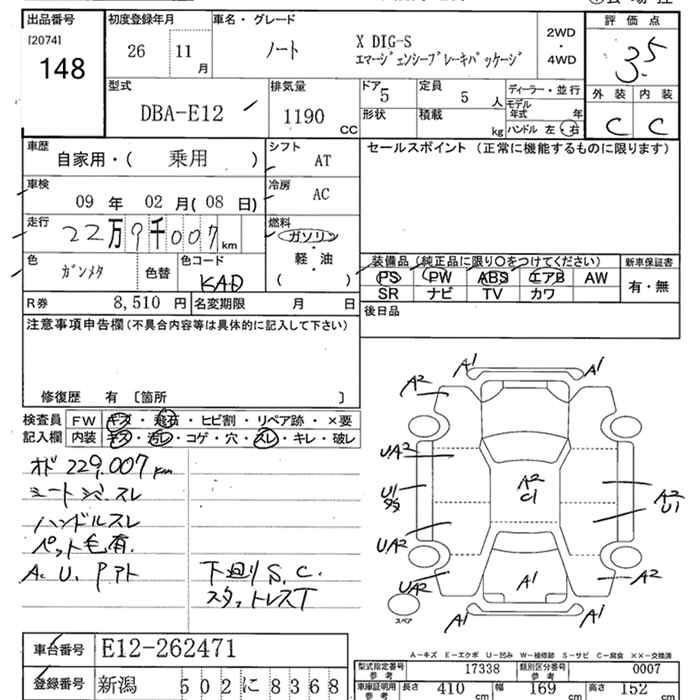 出品番号 初度登録年月 車名・グレード 評価点
[2074] 148 26 11月 ノート X DIG-S エマージェンシーブレーキパッケージ 2WD・4WD 3.5
型式 DBA-E12 排気量 1190 CC ドア 5 定員 5人 ディーラー・並行
形状 積載 kg モデル年式 年 ハンドル 左・右 外装 C 内装 C
車歴 自家用・( 乗用 ) シフト AT セールスポイント(正常に機能するものに限ります)
車検 09年 02月(08日) 冷房 AC
走行 22万9千007km 燃料 ガソリン 軽・油 ( )
色 ガンメタ 色替 色コード KAD
装備品(純正品に限り○をつけてください) 新車保証書
PS PW ABS エアB AW 有・無
SR ナビ TV カワ
R券 8,510円 名変期限 月 日 後日品
注意事項申告欄(不具合内容等は具体的に記入して下さい)
修復歴 有 〔箇所 〕
検査員 FW キズ・飛石・ヒビ割・リペア跡・×要
記入欄 内装 キズ・汚レ・コゲ・穴・スレ・キレ・破レ
オド 229.007km
シートシミ.スレ
ハンドルスレ
ペット毛有.
A.U.Pアト
下廻りS.C.
スタットレスT
A1 A1
A2
UA2
A2 C1
U1
A2 U1
UA2
UA2 A1 A2
A1 A1
スペア
A−キズ E−エクボ U−凹み W−補修跡 S−サビ C−腐食 ××−交換済
車台番号 E12-262471
型式指定番号 参考 17338 類別区分番号 参考 0007
登録番号 新潟 502に8368
車庫証明用 参考 長さ 410cm 幅 169cm 高さ 152cm